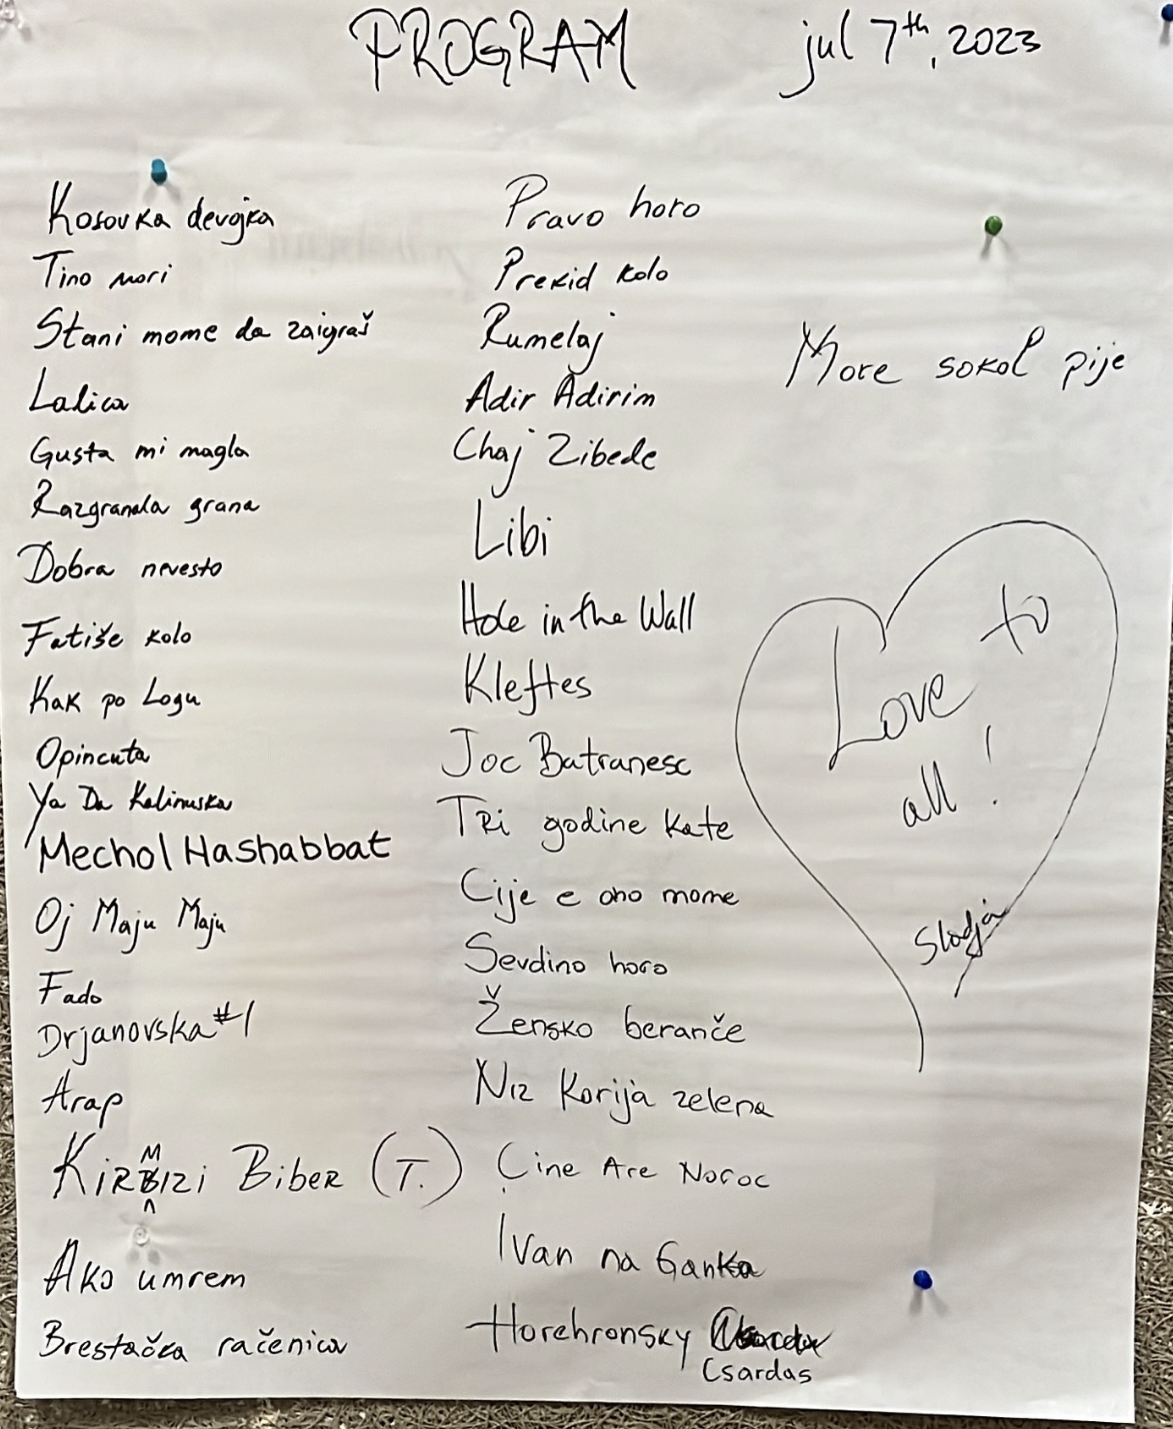 PROGRAM
jul 7th, 2023
Kosovka devojka
Tino mori
Stani mome da zaigraš
Lalica
Gusta mi magla
Razgranala grana
Dobra nevesto
Fatiše kolo
Kak po Logu
Opincuta
Ya Da Kalinuska
Mechol Hashabbat
Oj Maju Maju
Fado
Drjanovska #1
Arap
KIRMIZI BIBER (T.)
Ako umrem
Brestačka račenica
Pravo horo
Prekid kolo
Rumelaj
Adir Adirim
Chaj Zibede
Libi
Hole in the Wall
Kleftes
Joc Batranesc
TRi godine Kate
Cije e ono mome
Sevdino horo
Žensko beranče
Niz Korija zelena
Çine Are Noroc
Ivan na Ganka
Horehronsky
Csardas
More sokol pije
Love to
all!
Sladja